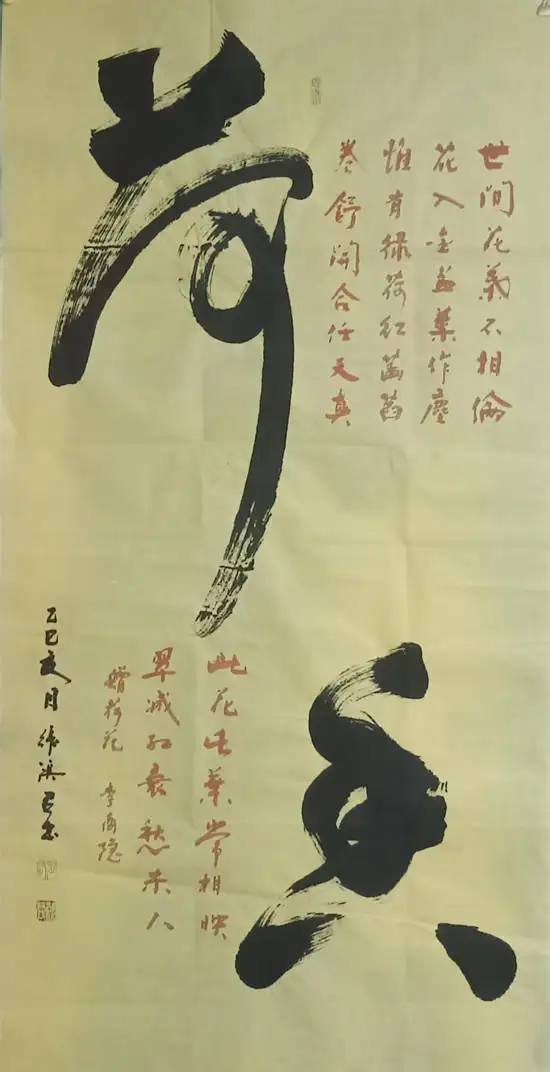 荷
世間花葉不相倫
花入金盆葉作塵
惟有绿荷红菡萏
卷舒開合任天真
此花此葉常相映
翠减红衰愁杀人
赠荷花 李商隐
乙巳夏月